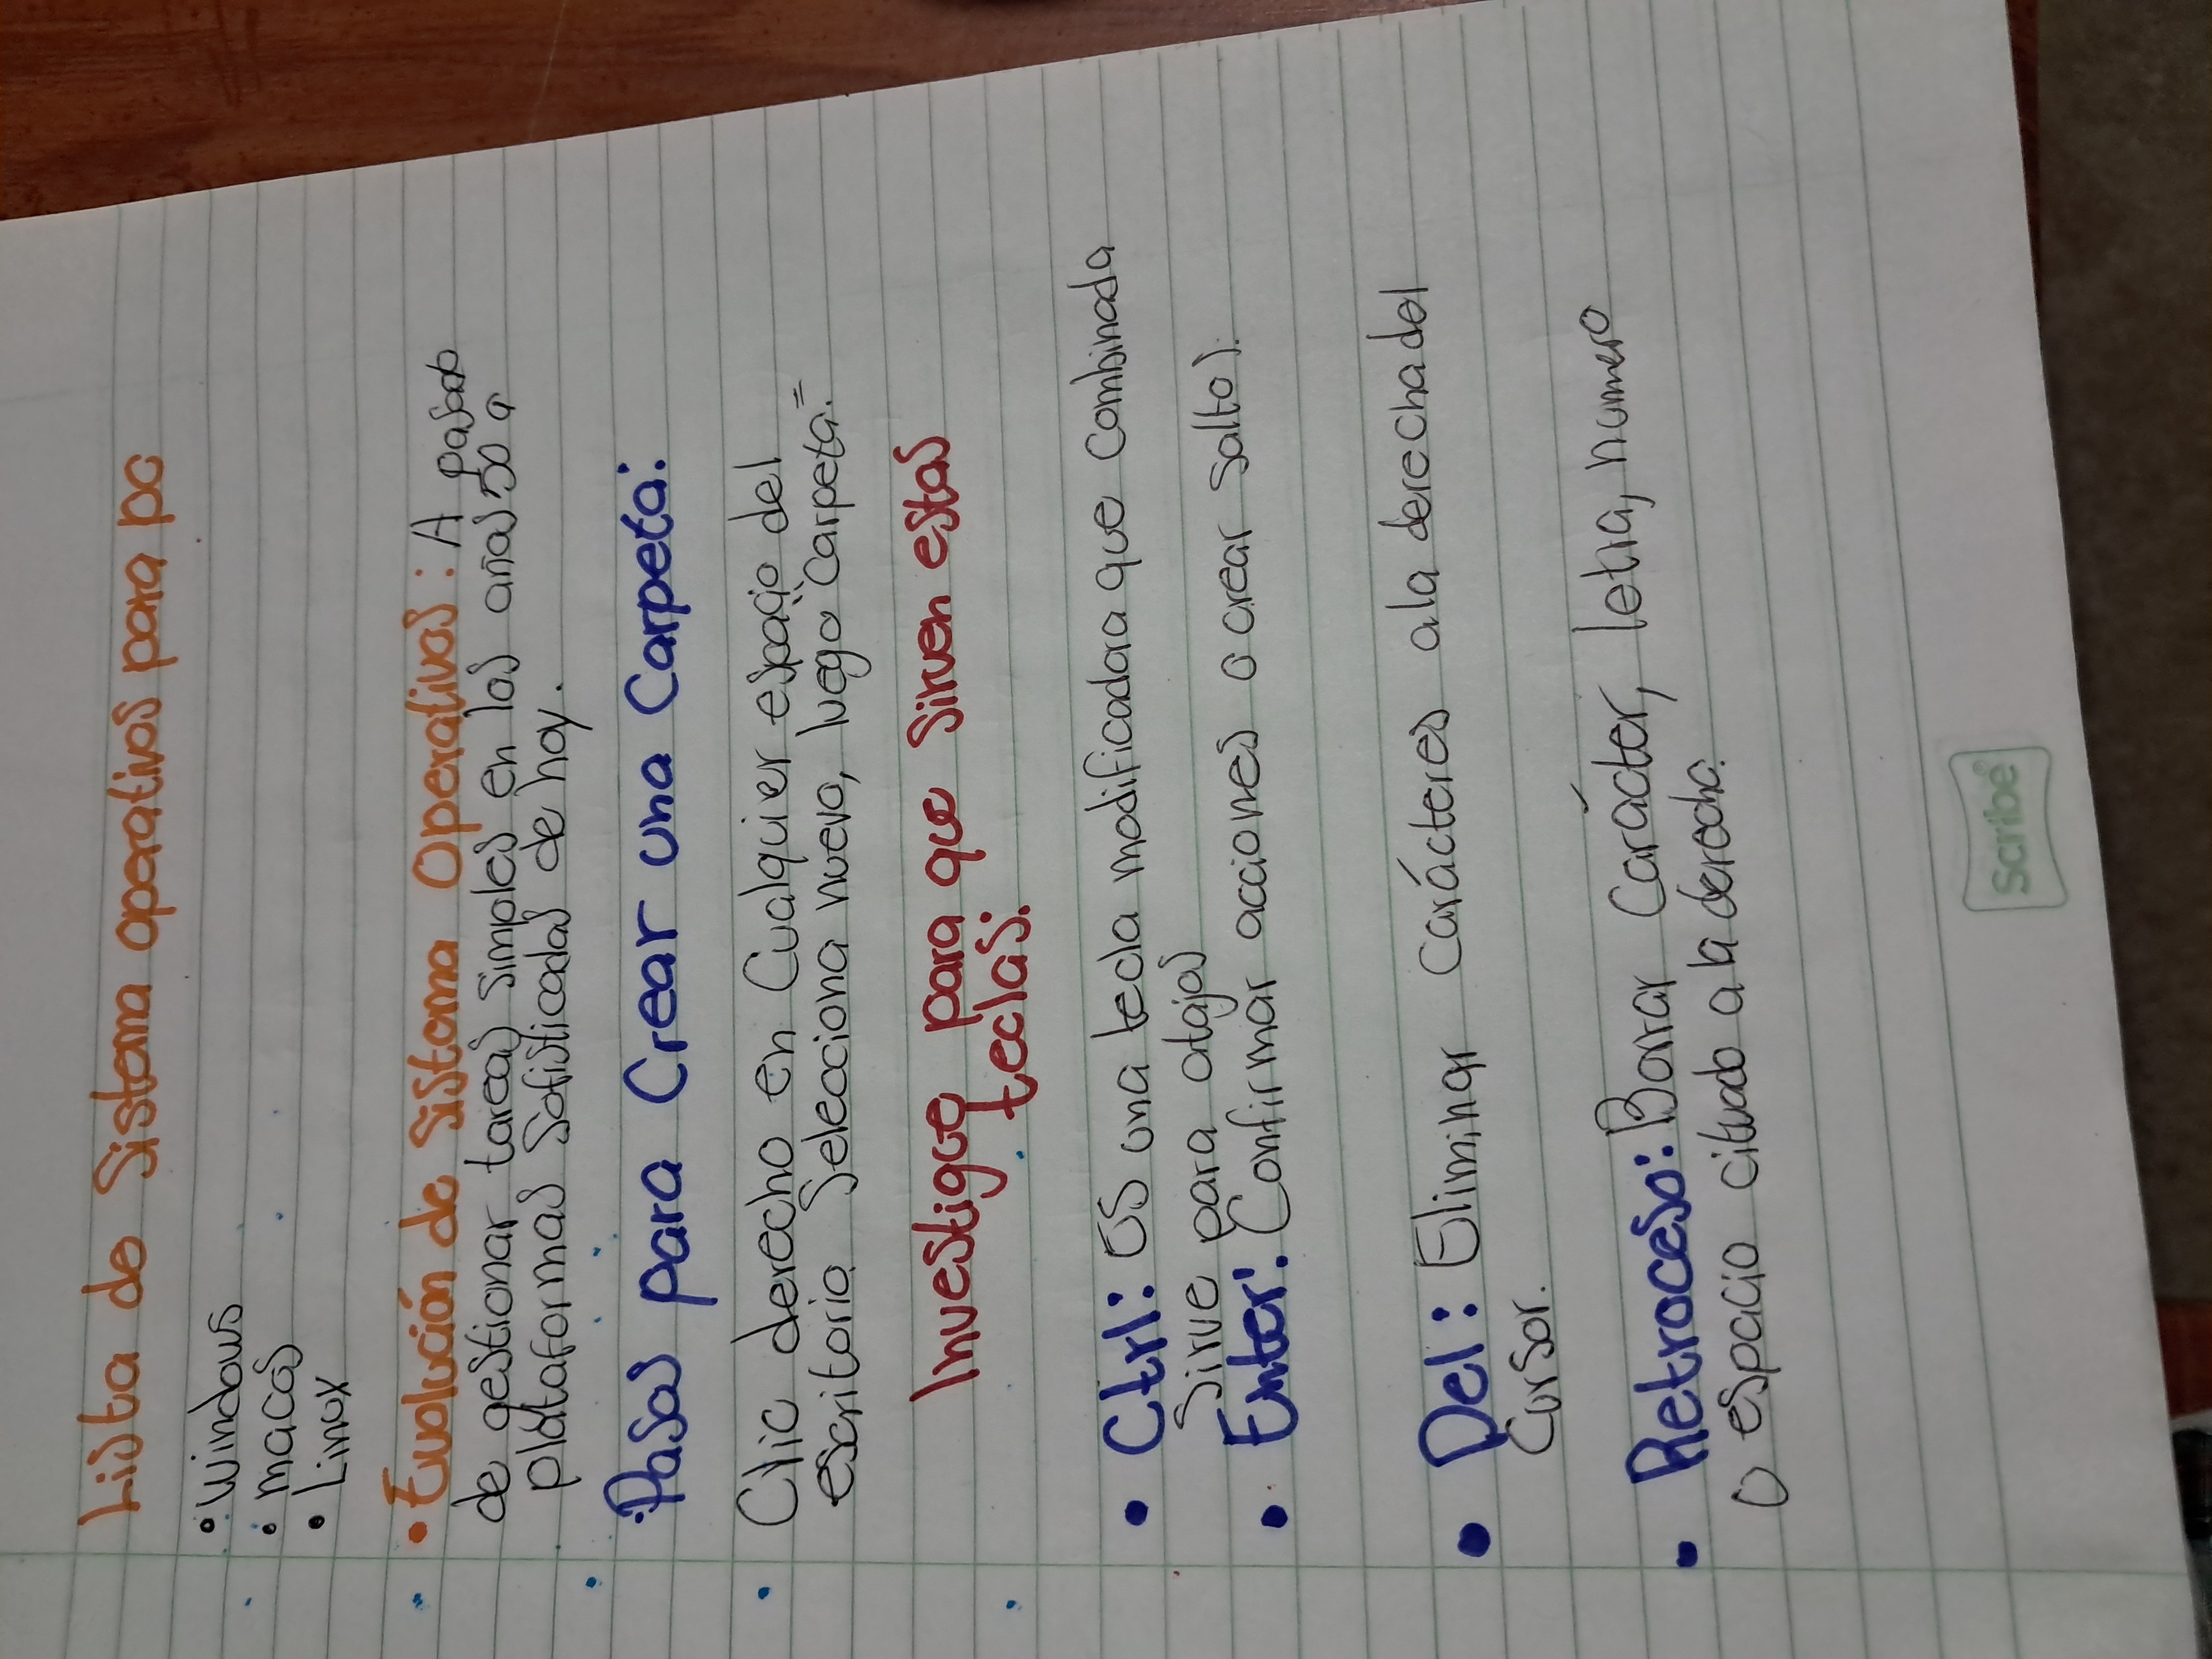 Lista de Sistema operativos para pc
• Windows
• macos
• Linux
• Evolución de sistema Operativos: A pasado
de gestionar tareas simples en las años 50 a
plataformas Sofisticadas de hoy.
• Pasos para Crear una Carpeta:
Clic derecho en Cualquier espacio del
escritorio. Selecciona nuevo, luego Carpeta.=
Investigue para que Sirven estas
teclas:
• Ctrl: es una tecla modificadora que combinada
Sirve para atajos
• Enter: Confirmar acciones o crear salto).
• Del: Eliminar Carácteres ala derechadel
Cursor.
• Retroceso: Borrar Carácter, letra, numero
O espacio cituado a la derecha.
Scribe®